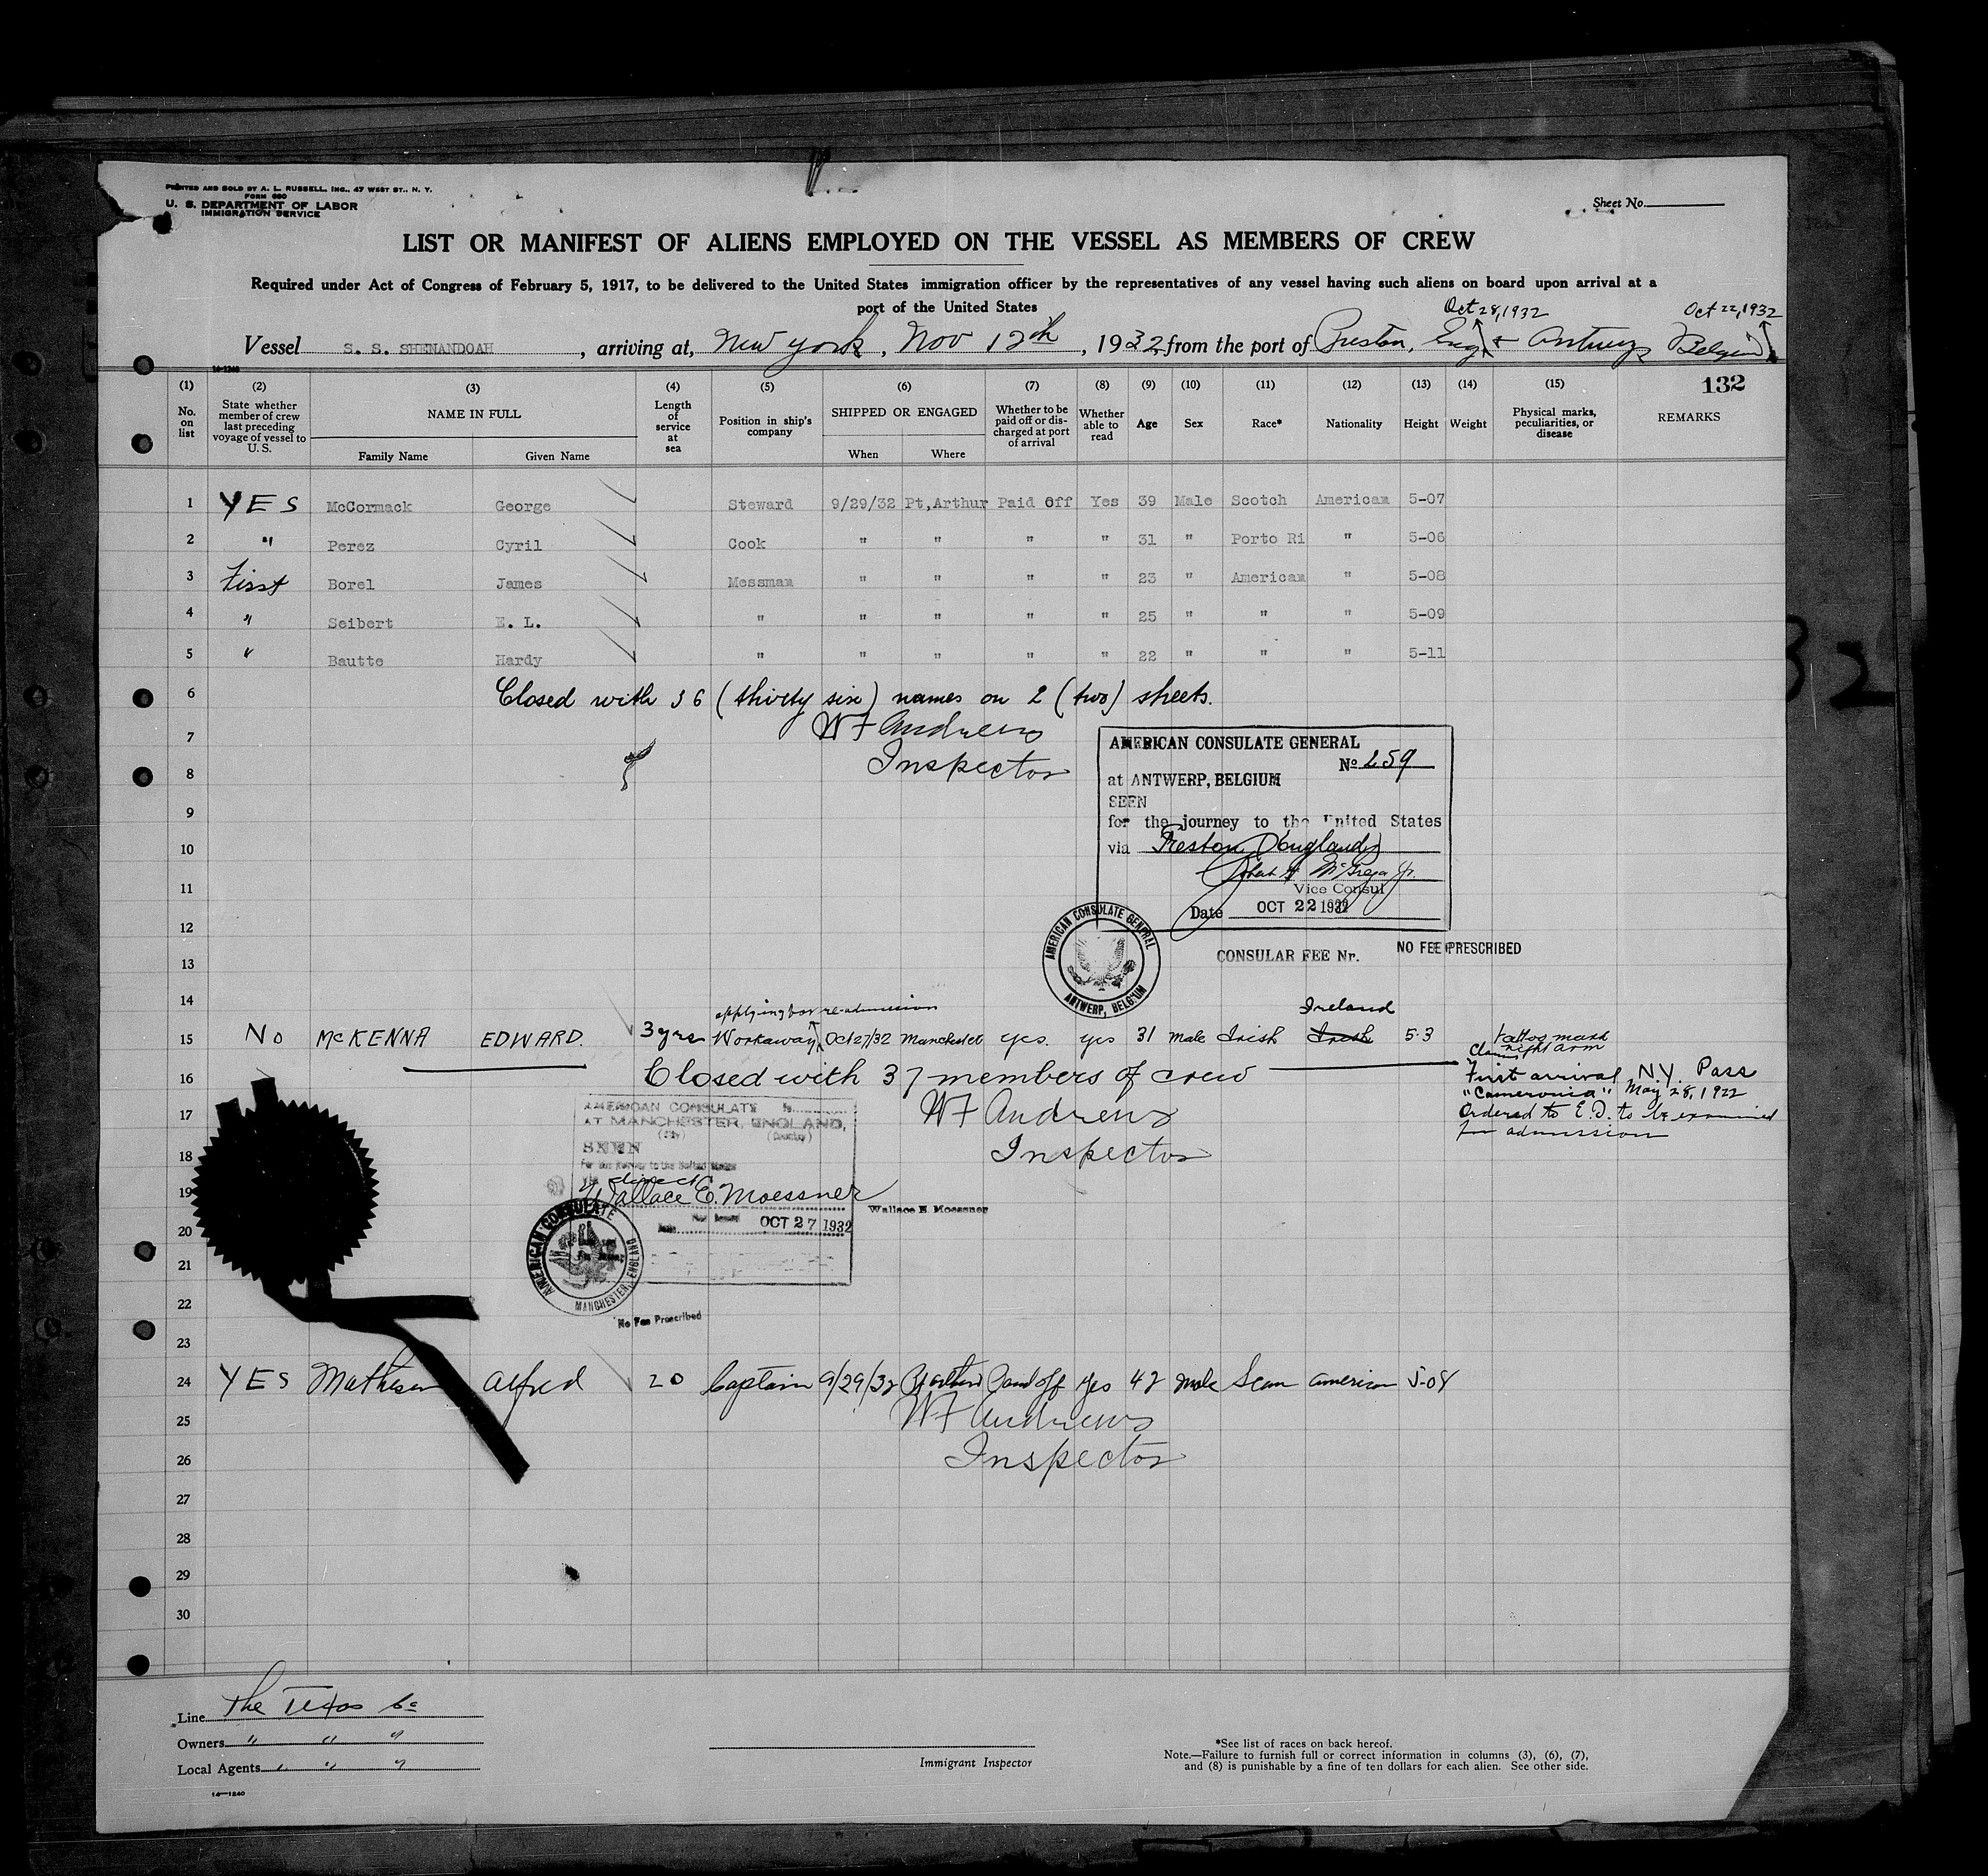 PRINTED AND SOLD BY A. L. RUSSELL, INC., 47 WEST ST., N. Y.
FORM 680
U. S. DEPARTMENT OF LABOR
IMMIGRATION SERVICE
Sheet No.
LIST OR MANIFEST OF ALIENS EMPLOYED ON THE VESSEL AS MEMBERS OF CREW
Required under Act of Congress of February 5, 1917, to be delivered to the United States immigration officer by the representatives of any vessel having such aliens on board upon arrival at a
port of the United States
Oct 28, 1932 Oct 22, 1932
Vessel S. S. SHENANDOAH, arriving at, New York, Nov 12th, 1932 from the port of Preston, Eng & Antwerp Belgium
14-1240
132
(1) No. on list
(2) State whether member of crew last preceding voyage of vessel to U. S.
(3) NAME IN FULL
Family Name Given Name
(4) Length of service at sea
(5) Position in ship's company
(6) SHIPPED OR ENGAGED
When Where
(7) Whether to be paid off or discharged at port of arrival
(8) Whether able to read
(9) Age
(10) Sex
(11) Race*
(12) Nationality
(13) Height
(14) Weight
(15) Physical marks, peculiarities, or disease
REMARKS
1 YES McCormack George Steward 9/29/32 Pt,Arthur Paid Off Yes 39 Male Scotch American 5-07
2 " Perez Cyril Cook " " " " 31 " Porto Ri " 5-06
3 First Borel James Messman " " " " 23 " American " 5-08
4 " Seibert E. L. " " " " " 25 " " " 5-09
5 " Bautte Hardy " " " " " 22 " " " 5-11
6 Closed with 36 (thirty six) names on 2 (two) sheets.
7 W F Andrews
8 Inspector
AMERICAN CONSULATE GENERAL
No 259
at ANTWERP, BELGIUM
SEEN
for the journey to the United States
via Preston (England)
Vice Consul
Date OCT 22 1932
9
10
11
12
13
AMERICAN CONSULATE GENERAL
ANTWERP, BELGIUM
CONSULAR FEE Nr. NO FEE PRESCRIBED
14
applying for re-admission Ireland
15 No McKENNA EDWARD. 3 yrs Workaway Oct 27/32 Manchester yes. yes 31 male Irish Irish 5-3 tattoo mark
right arm
16 Closed with 37 members of crew
Claims
First arrival N.Y. Pass
"Cameronia" May 28, 1922
Ordered to E.I. to be examined
for admission
17 W F Andrews
18 Inspector
AMERICAN CONSULATE
AT MANCHESTER, ENGLAND,
(City) (Country)
SEEN
For the journey to the United States
via direct
Wallace E. Moessner
Wallace E. Moessner
OCT 27 1932
AMERICAN CONSULATE
MANCHESTER, ENGLAND
No Fee Prescribed
19
20
21
22
23
24 YES Mathesen Alfred 20 Captain 9/29/32 Pt Arthur Paid off yes 42 male Scan American 5-08
25 W F Andrews
26 Inspector
27
28
29
30
Line The Texas Co
Owners " " "
Local Agents " " "
14-1240
Immigrant Inspector
*See list of races on back hereof.
Note.—Failure to furnish full or correct information in columns (3), (6), (7),
and (8) is punishable by a fine of ten dollars for each alien. See other side.
32